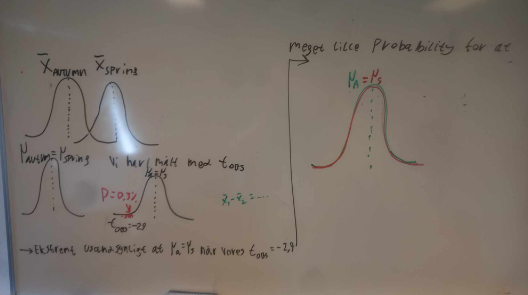 X̄AUTUMN X̄SPRING
μAUTUMN=μSPRING Vi har målt med tOBS
P=0,3%
tOBS=-2,9
x̄₁-x̄₂=...
→Ekstremt usandsynligt at μA=μS når vores tOBS=-2,9
meget lille Probability for at
μA=μS